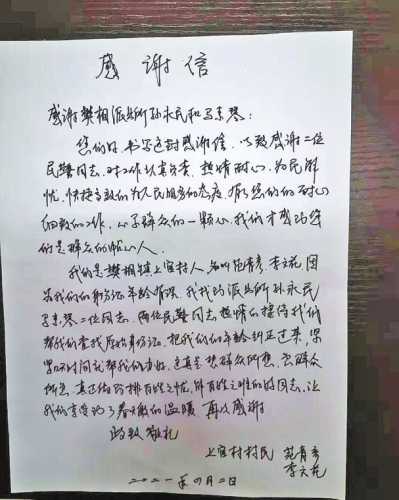 感谢信
感谢樊相派出所孙永民和马素琴:
您们好,书写这封感谢信,以致感谢二位
民警同志,对工作认真负责,热情耐心,为民解
忧,快捷高效的为人民服务的态度,有您们的耐心
细致的工作,心系群众的一颗心,我们才感到您
们是群众的贴心人。
我们是樊相镇上官村人,名叫范青彦,李文花,因
为我们的身份证年龄有误,我找到派出所孙永民
马素琴二位同志,两位民警同志热情的接待我们
帮我们查找原始身份证,把我们的年龄纠正过来,
不时间就帮我们办好,这真是想群众所想,急群众
所急,真正做到排百姓之忧,解百姓之难的好同志,让
我们享受到了春天般的温暖,再次感谢
此致 敬礼
上官村村民 范青彦
李文花
二〇二一年四月二日